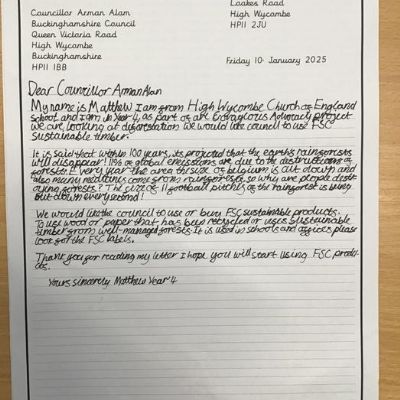 Loakes Road
High Wycombe
HP11 2JU
Councillor Arman Alam
Buckinghamshire Council
Queen Victoria Road
High Wycombe
Buckinghamshire
HP11 1BB
Friday 10 January 2025
Dear Councillor Arman Alan
My name is Matthew I am from High Wycombe Church of England
School and I am in Year 4, as part of are Advocacy project
we are looking at we would like council to use FSC
sustainable timber.
It is said that within 100 years, its projected that the earths rainforests
will disappear! 15% of global are due to the of
forests! Every year the area the size of belgium is cut down and
also many come from rainforests, so why are people
forests? The size of 11 football pitches of the rainforest is being
cut down every second!
We would like the council to use or buy FSC sustainable products.
To use wood or paper that has been recycled or uses sustainable
timber from well-managed forests. It is used in schools and offices please
look for the FSC labels.
Thank you for reading my letter I hope you will start using FSC produ-
Yours sincerely Matthew Year 4